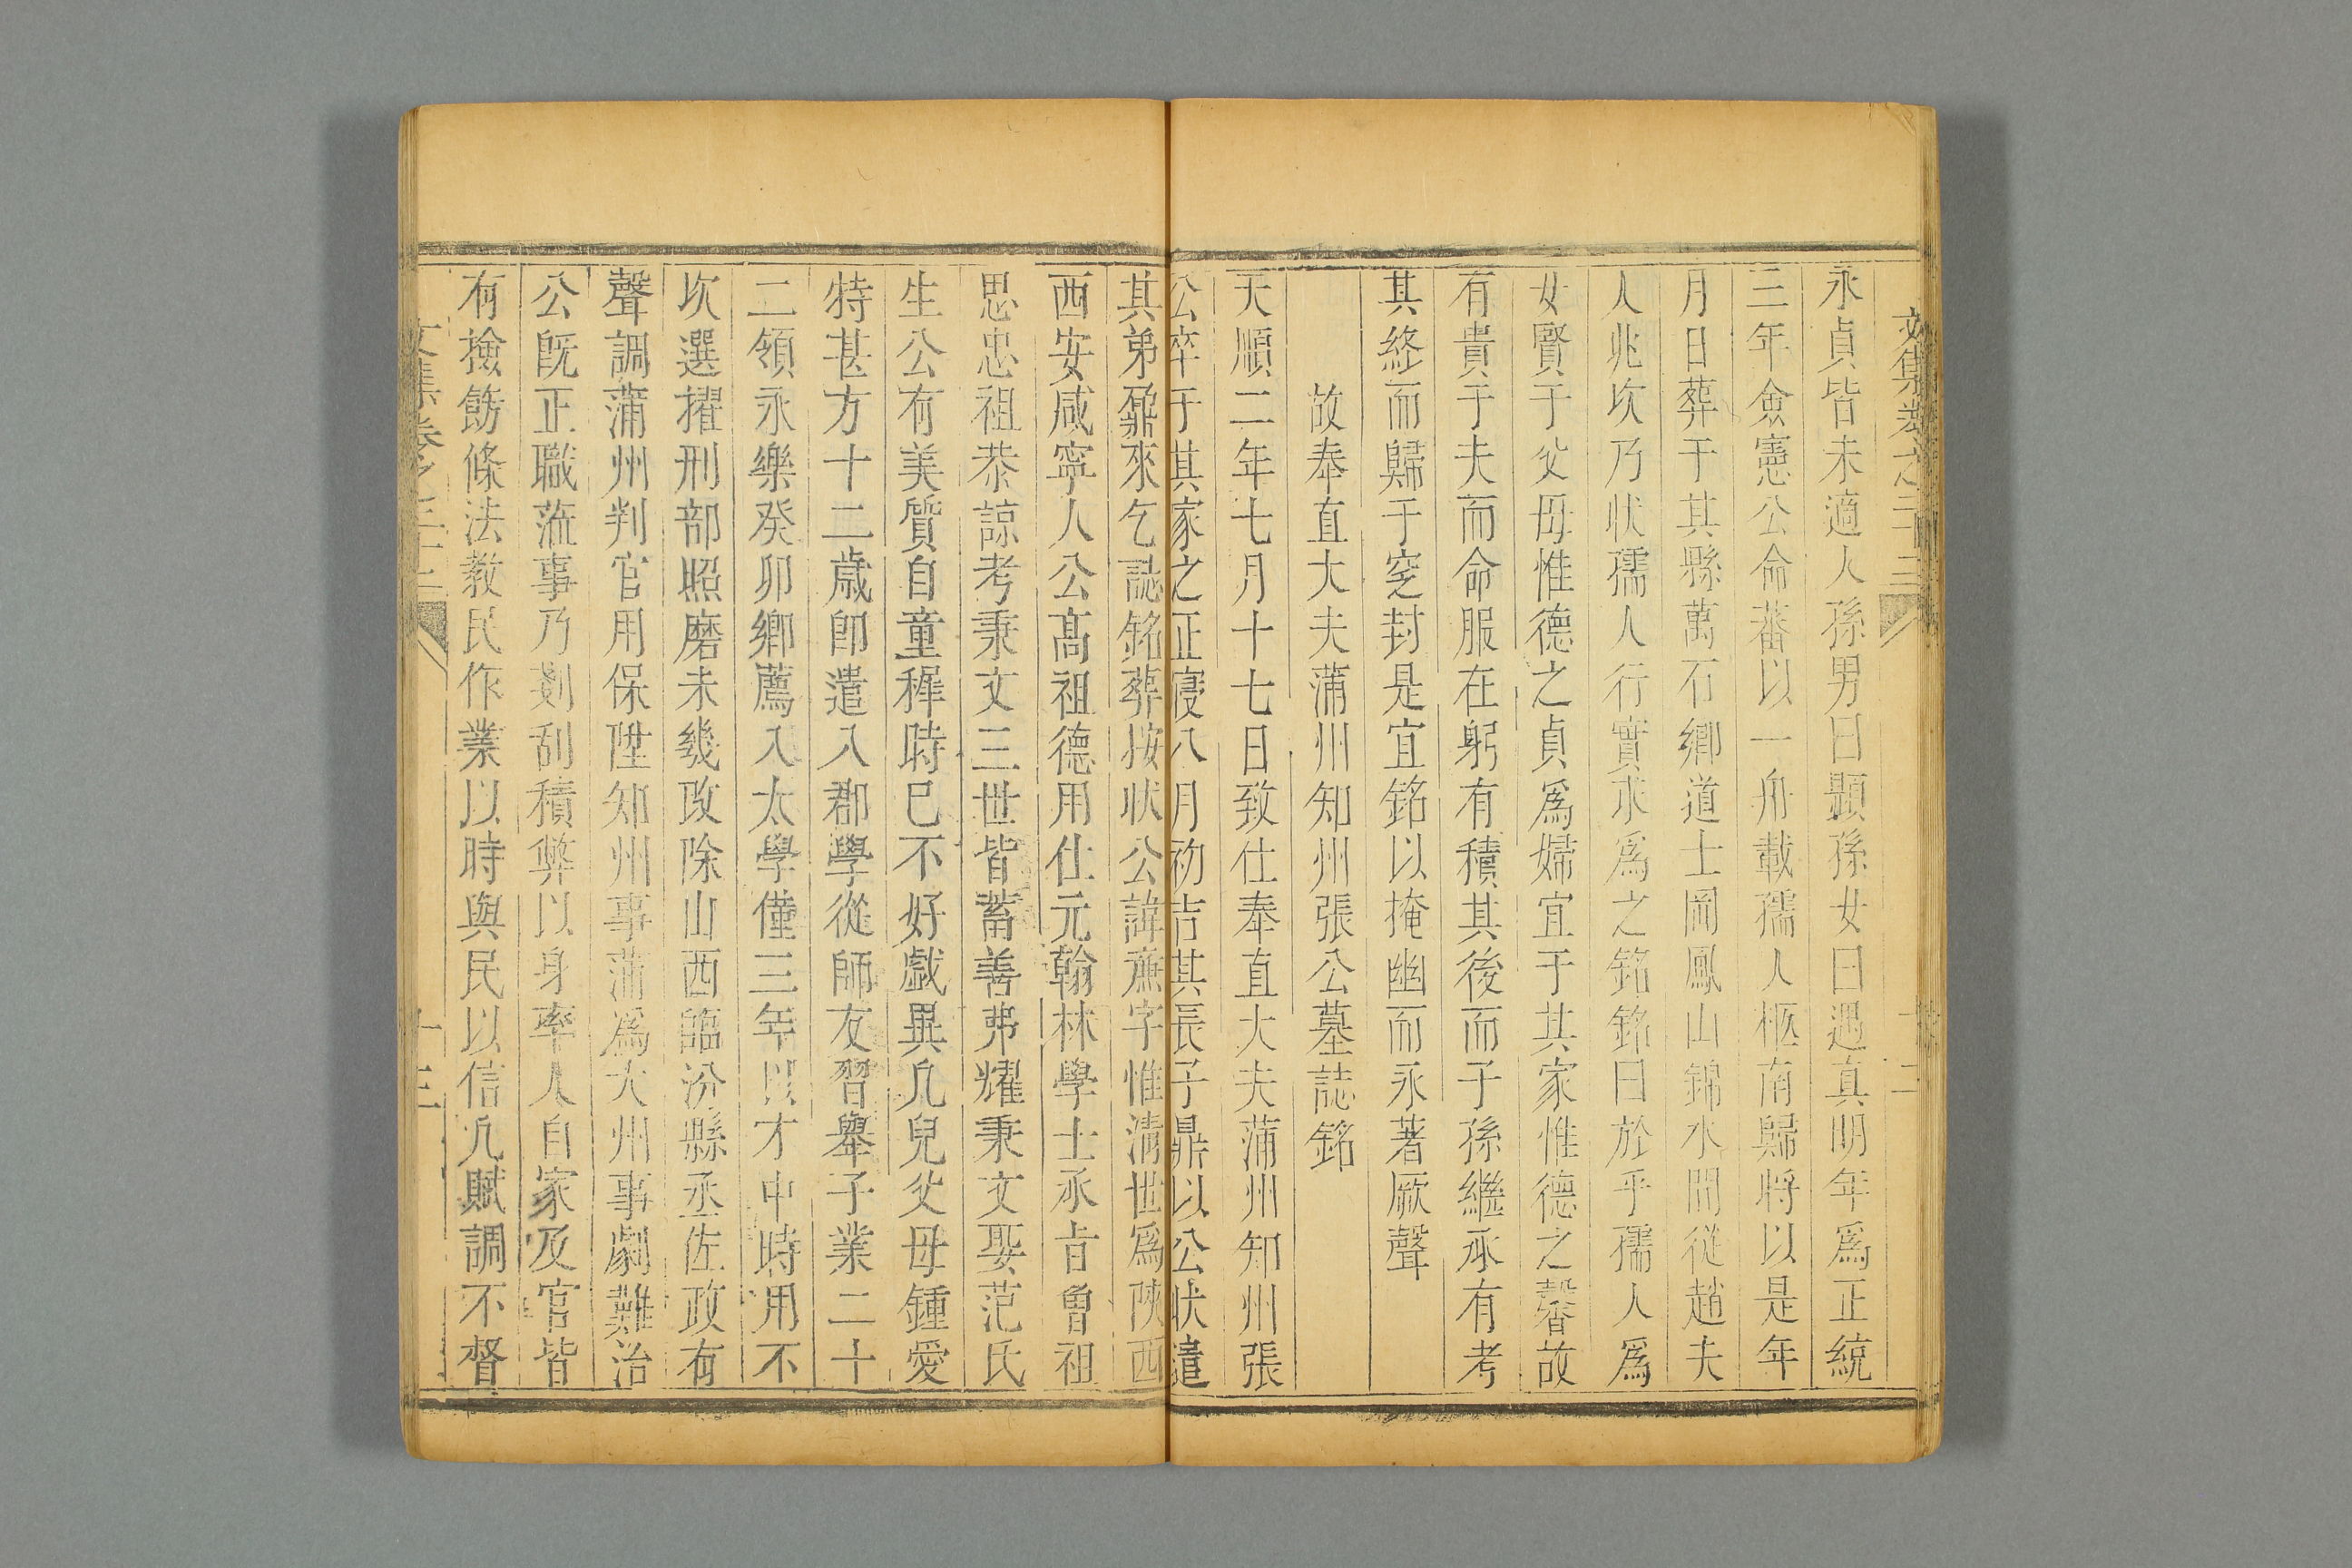 文集卷之二十三
十二
永貞皆未適人孫男曰顥孫女曰遇真明年爲正統
三年僉憲公命蕃以一舟載孺人柩南歸將以是年
月日葬于其縣萬石鄉道士岡鳳山錦水間從趙夫
人兆坎乃狀孺人行實求爲之銘銘曰於乎孺人爲
女賢于父母惟德之貞爲婦宜于其家惟德之馨故
有貴于夫而命服在躬有積其後而子孫繼承有考
其終而歸于窆封是宜銘以掩幽而永著厥聲
故奉直大夫蒲州知州張公墓誌銘
天順二年七月十七日致仕奉直大夫蒲州知州張
公卒于其家之正寢八月初吉其長子鼎以公狀遣
其弟鼐來乞誌銘葬按狀公諱㢘字惟清世爲陝西
西安咸寧人公髙祖德用仕元翰林學士承㫖曽祖
思忠祖恭諒考秉文三世皆蓄善弗耀秉文娶范氏
生公有美質自童穉時已不好戲異凢兒父母鍾愛
特甚方十二歲即遣入郡學從師友習舉子業二十
二領永樂癸卯鄉薦入太學僅三年以才中時用不
次選擢刑部照磨未幾改除山西臨汾縣丞佐政有
聲調蒲州判官用保陞知州事蒲爲大州事劇難治
公旣正職蒞事乃剗刮積弊以身率人自家及官皆
有撿飭條法教民作業以時與民以信凢賦調不督
文集卷之二十三
十三